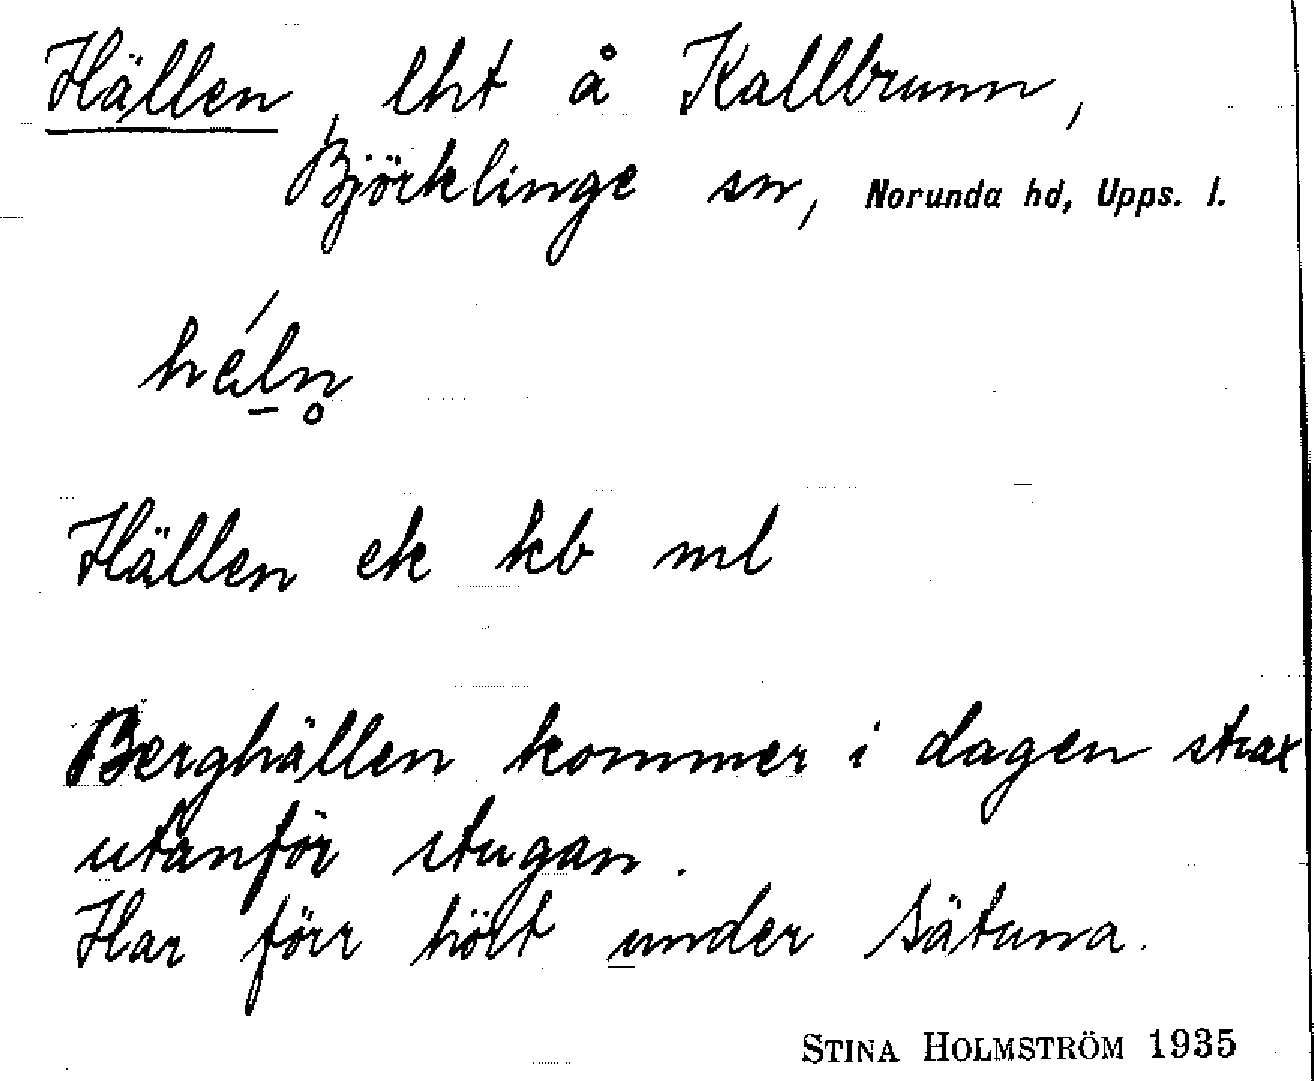 Hällen, lht å Kallbrunn,
Björklinge sn, Norunda hd, Upps. l.
hel̠n̥
Hällen ek kb ml
Berghällen kommer i dagen strax
utanför stugan.
Har förr hört under Sätuna.
STINA HOLMSTRÖM 1935